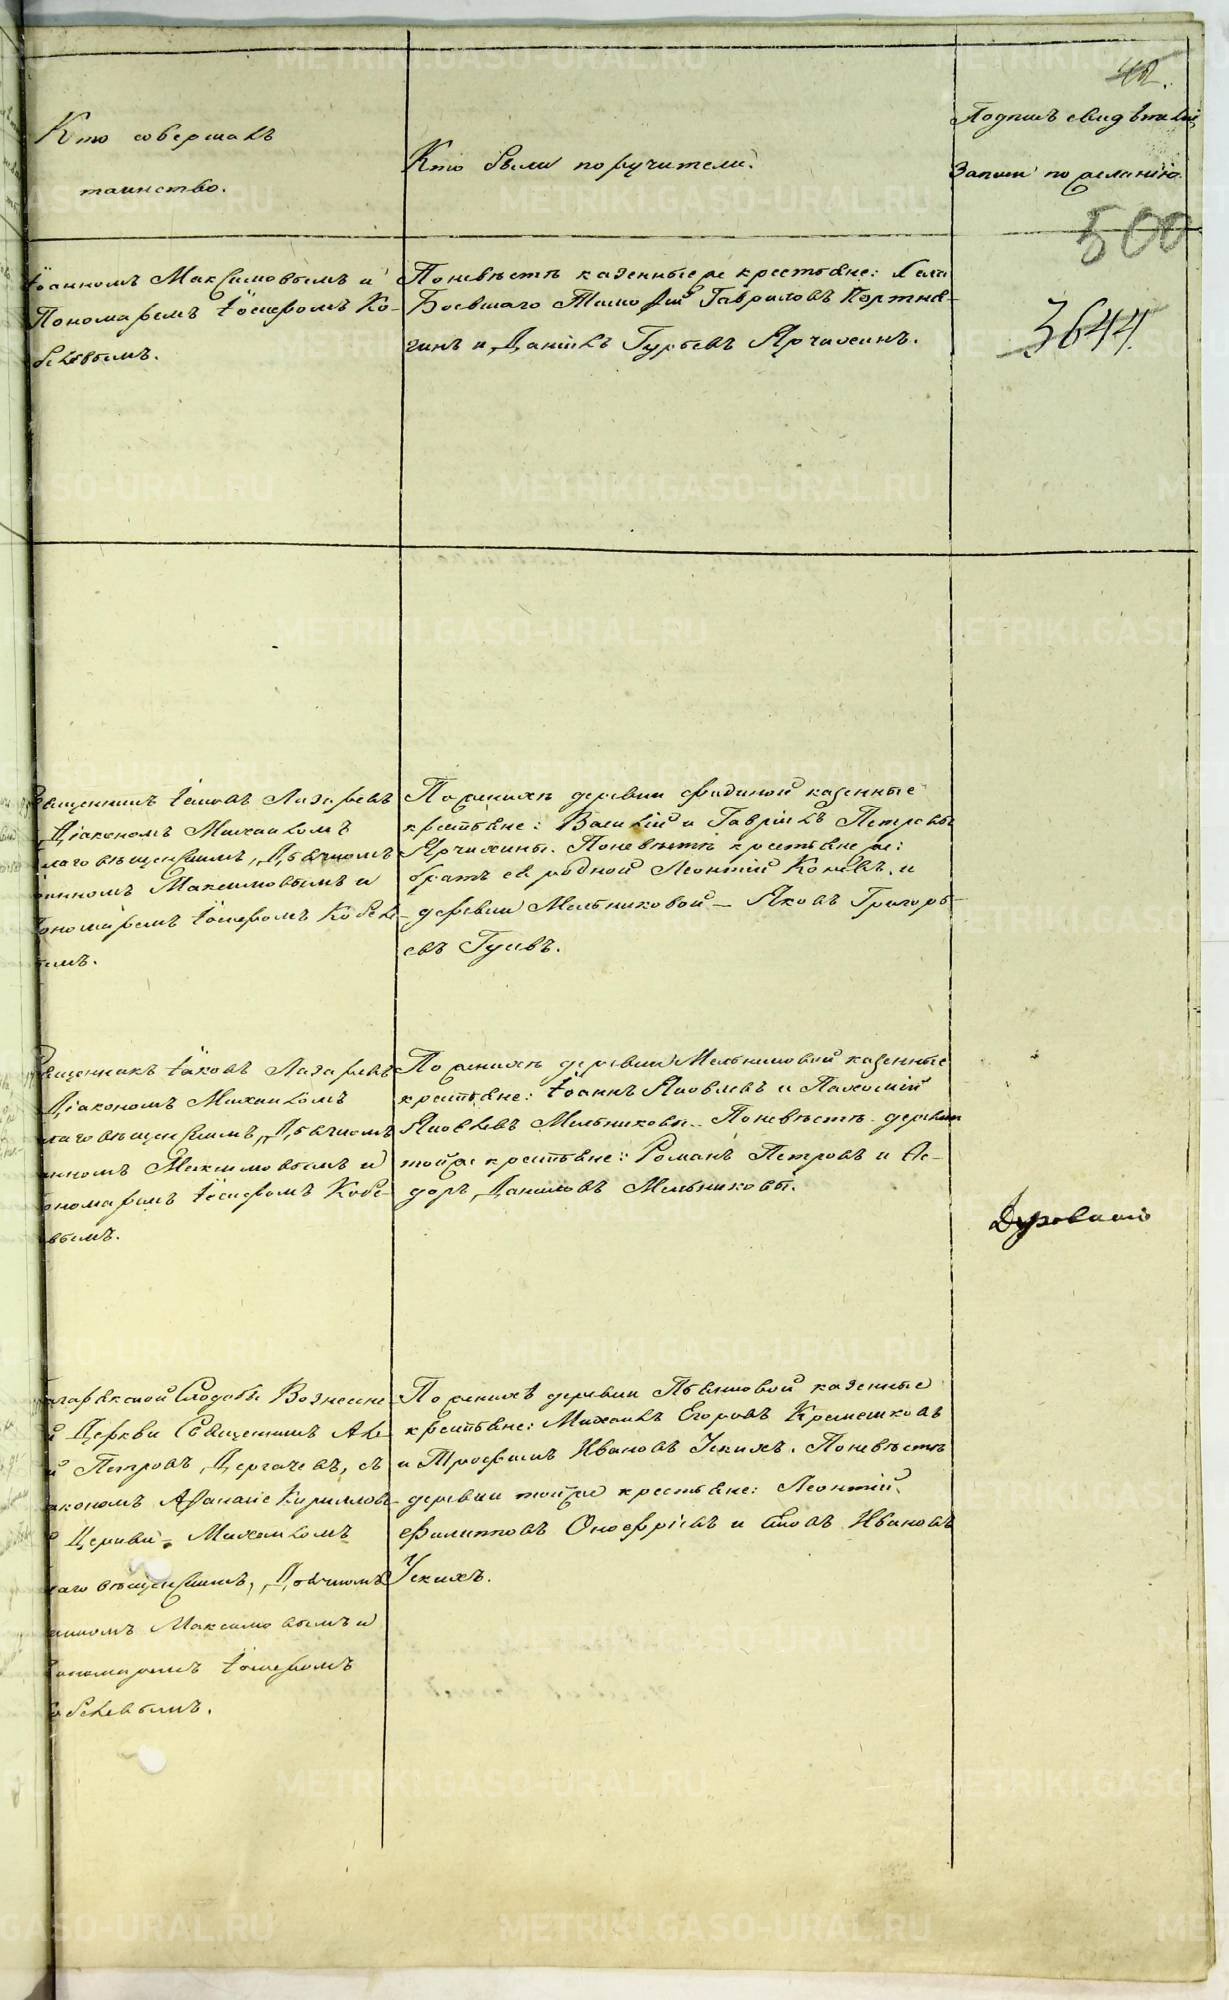 42.
Кто совершалъ
таинство.
Кто были поручители.
Подпись свидѣтелей
записи по желанію.
500
3644.
Іоанномъ Максимовымъ и
Пономаремъ Іосифомъ Ко-
Поневѣстѣ казенные же крестьяне: Села
Боевскаго Тимофей Гавриловъ
и Данилъ Гурьевъ Ярчихинъ.
Священникъ Іаковъ Лазаревъ
Діакономъ Михаиломъ
Благовѣщенскимъ, Дьячкомъ
Іоанномъ Максимовымъ и
Пономаремъ Іосифомъ
Поженихѣ деревни казенные
крестьяне: Василій и Гавріилъ Петровы
Ярчихины. Поневѣстѣ крестьяне же:
братъ ея родной Леонтій и
деревни Мельниковой – Яковъ Григорь-
евъ Гусевъ.
Священникъ Іаковъ Лазаревъ
Діакономъ Михаиломъ
Благовѣщенскимъ, Дьячкомъ
Іоанномъ Максимовымъ и
Пономаремъ Іосифомъ
Поженихѣ деревни Мельниковой казенные
крестьяне: Іоаннъ Яковлевъ и Пахомій
Яковлевъ Мельниковы. Поневѣстѣ деревни
тойже крестьяне: Романъ Петровъ и Ѳе-
доръ Даниловъ Мельниковы.
Слободы Вознесенс
й Церкви Священникъ Але
й Петровъ Дергачевъ, съ
акономъ Афанасіе Кириллов
Церкви – Михаиломъ
Благовѣщенскимъ, Дьячкомъ
Іоанномъ Максимовымъ и
Пономаремъ Іосифомъ
Поженихѣ деревни казенные
крестьяне: Михаилъ Егоровъ
и Трофимъ Ивановъ Ускихъ. Поневѣстѣ
деревни тойже крестьяне: Леонтій
Филипповъ Онофріевъ и Іовъ Ивановъ
Ускихъ.